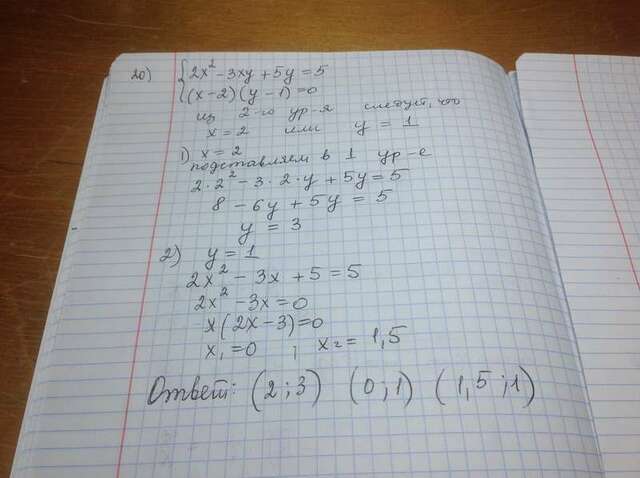 20) { 2x² - 3xy + 5y = 5
(x-2)(y-1)=0
из 2-го ур-я следует, что
x = 2 или y = 1
1) x = 2
подставляем в 1 ур-е
2·2² - 3·2·y + 5y = 5
8 - 6y + 5y = 5
y = 3
2) y = 1
2x² - 3x + 5 = 5
2x² - 3x = 0
x(2x-3)=0
x₁ = 0 ; x₂ = 1,5
Ответ: (2;3) (0;1) (1,5;1)